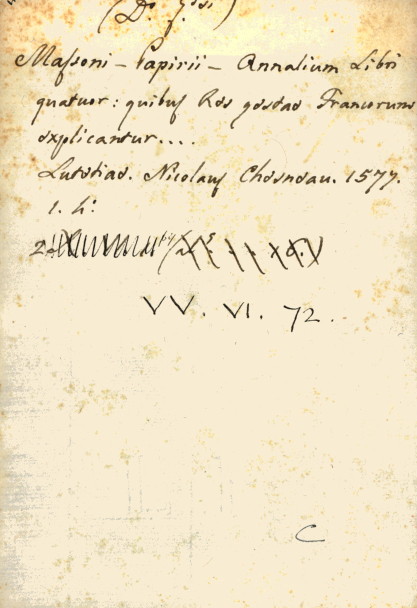 (Do
Massoni - Papirii - Annalium Libri
quatuor: quibus Res gestae Francorum
explicantur....
Lutetiae. Nicolaus Chesneau. 1577.
1. 4.°
2
VV. VI. 72.
C